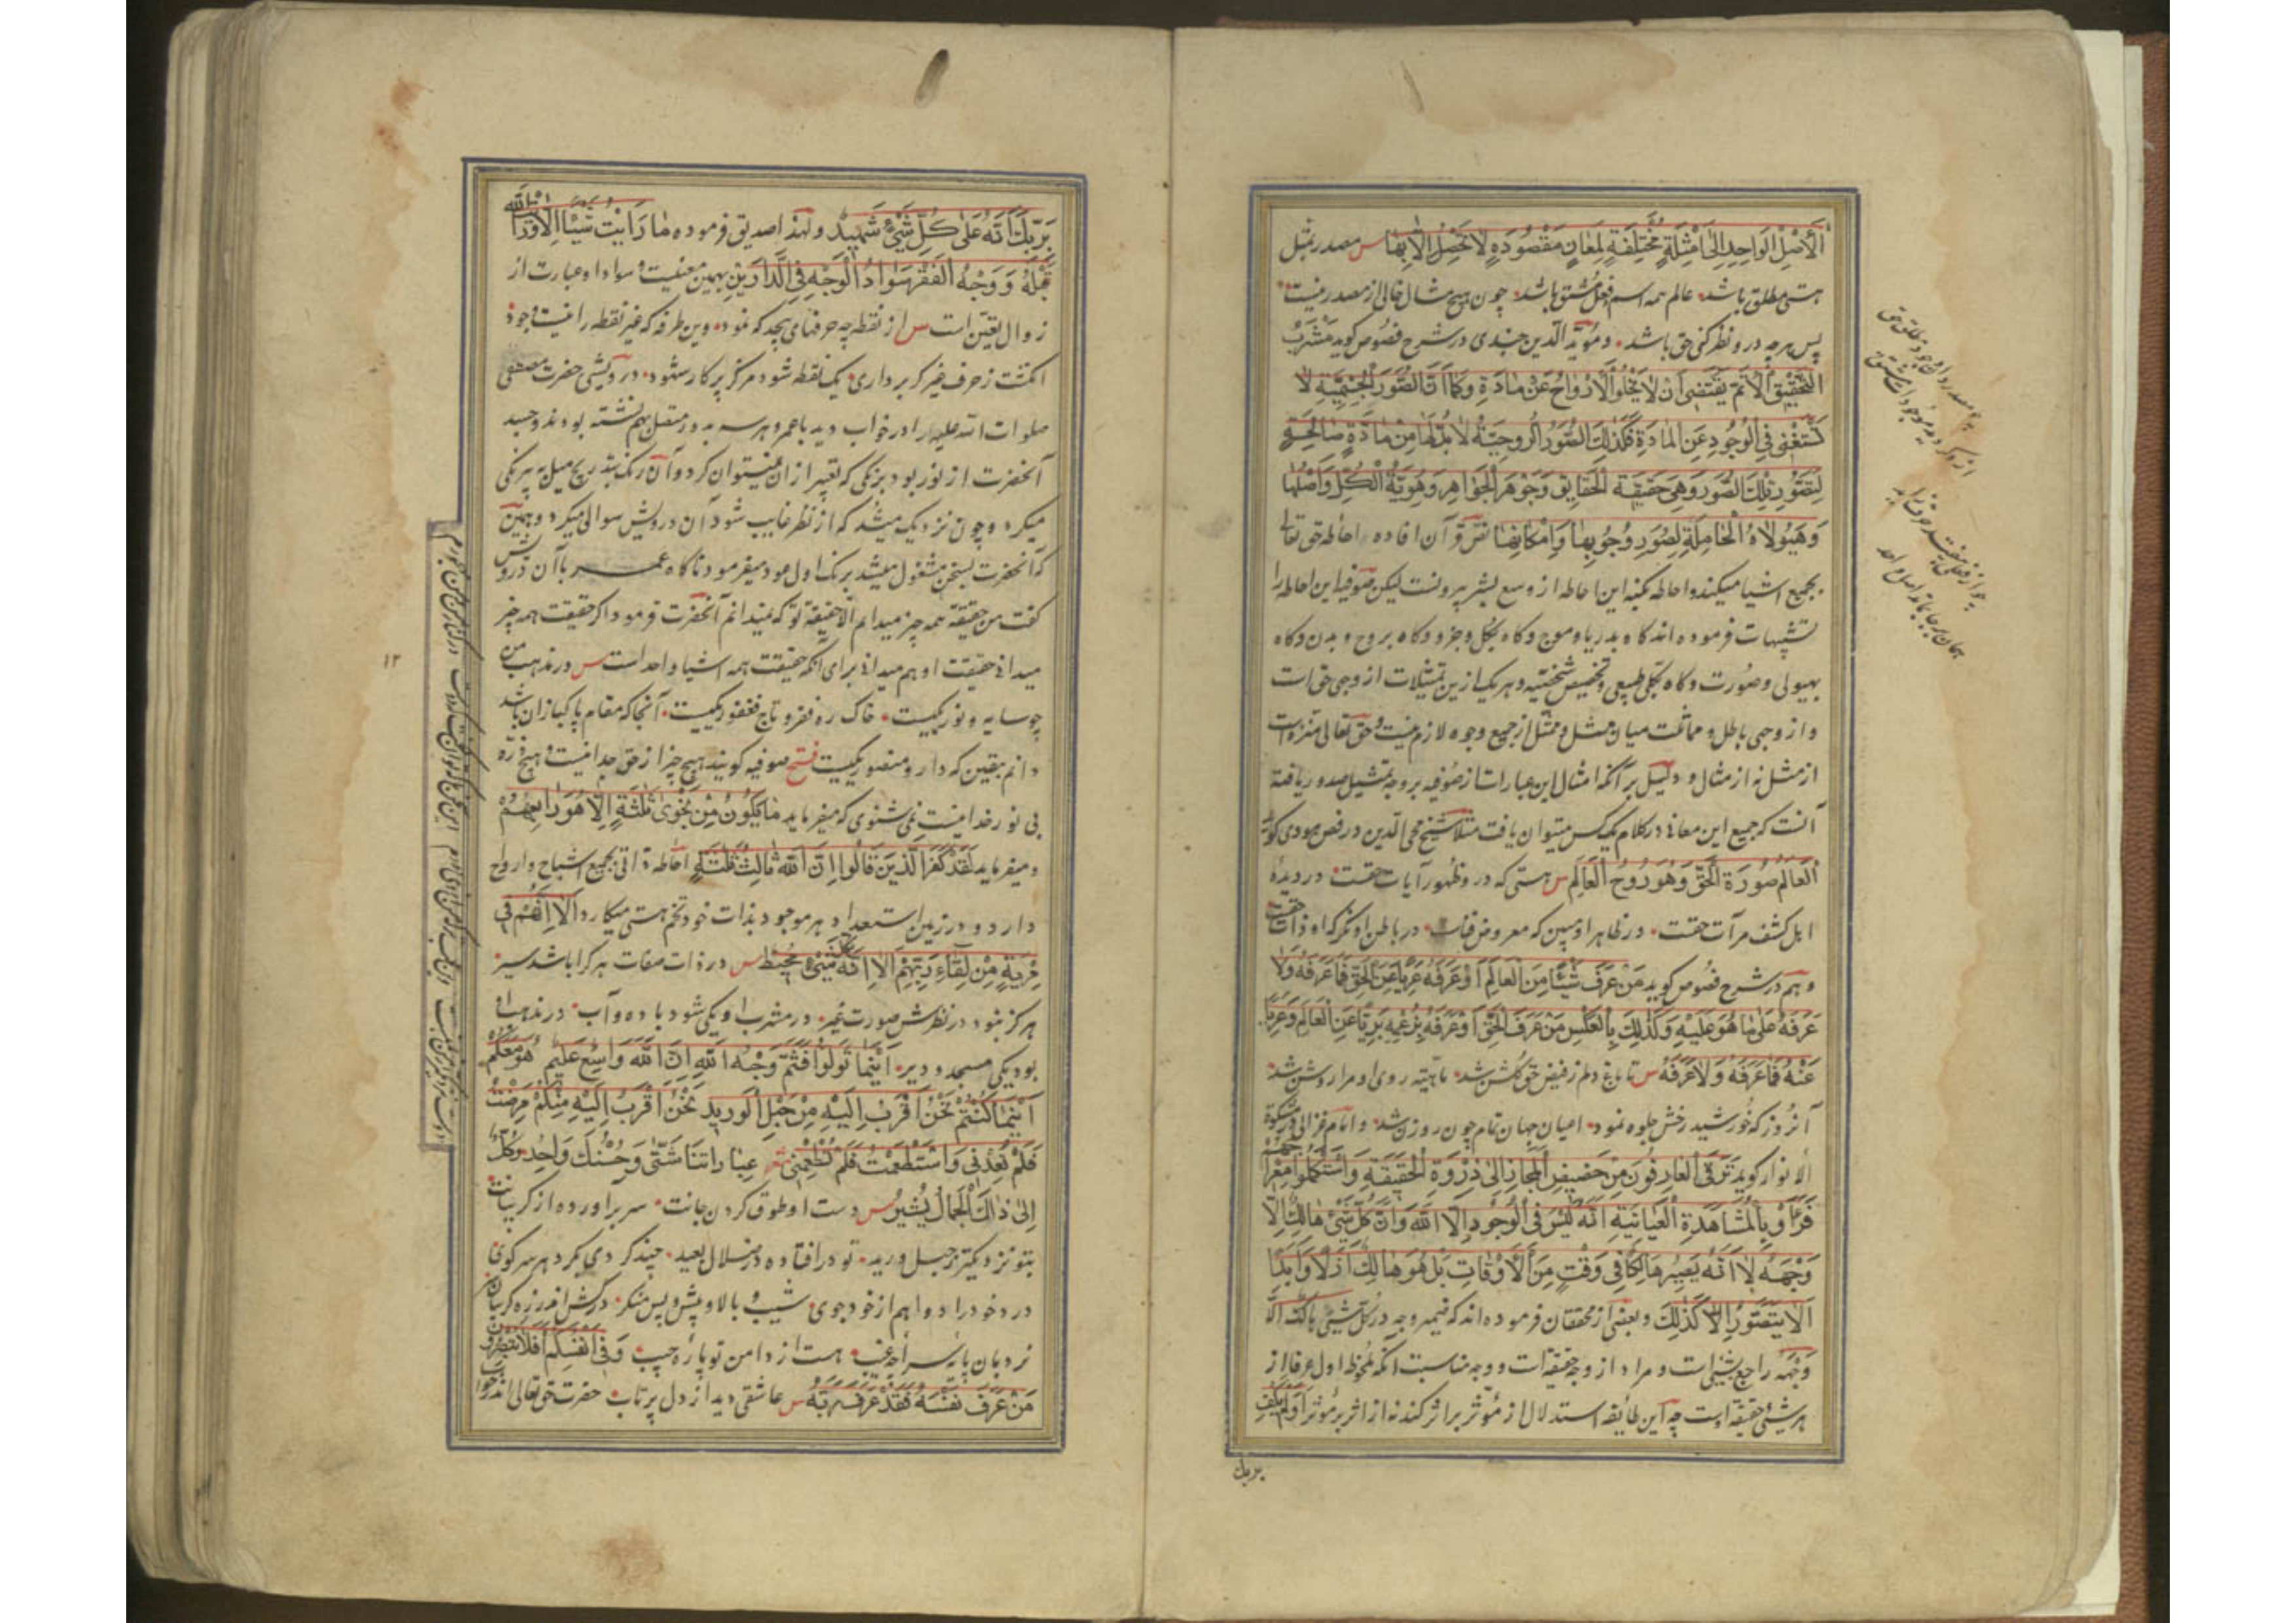 اَلْأَصْلِ الْوَاحِدِ اِلىٰ اَمْثِلَةٍ مُخْتَلِفَةٍ لِمَعَانٍ مَقْصُودَةٍ لَا تَحْصُلُ اِلَّا بِهَا س مصدر بمثل
هستی مطلق باشد عالم همه اسم و فعل مشتق باشد چون هیچ مثال خالی از مصدر نیست
پس هر چه درو نظر کنی حق باشد و مؤید الدین جندی در شرح فصوص کوید مَشْرَبُ
التَّحْقِيقِ الْأَتَمِّ يَقْتَضِى اَنْ لَا يَخْلُوَ الْاَرْوَاحُ عَنْ مَادَّةٍ وَكَمَا اَنَّ الصُّوَرَ الْجِسْمِيَّةَ لَا
تَسْتَغْنِى فِى الْوُجُودِ عَنِ الْمَادَةِ فَكَذٰلِكَ الصُّوَرُ الرُّوحِيَّةُ لَا بُدَّ لَهَا مِنْ مَادَّةٍ صَالِحَةٍ
لِتَصَوُّرِ تِلْكَ الصُّوَرِ وَهِىَ حَقِيقَةُ الْحَقَايِقِ وَجَوْهَرُ الْجَوَاهِرِ وَهُوِيَّةُ الْكُلِّ وَاَصْلُهَا
وَهَيُولَاهُ الْحَامِلَةِ لِصُوَرِ وُجُوبِهَا وَاِمْكَانِهَا نص قرآن افاده احاطه حق تعالی
بجمیع اشیا میکند و احاطه بکنه این احاطه از وسع بشر بیرونست لیکن صوفیه این احاطه را
تشبیهات فرموده اند کاه بدریا و موج و کاه بکل و جزو و کاه بروح و بدن و کاه
بهیولی و صورت و کاه بکلی طبیعی و تخصیص شخصیه و هر یک ازین تمثیلات از وجهی حق است
و از وجهی باطل و مماثلت میان ممثل و ممثل از جمیع وجوه لازم نیست و حق تعالی منزه است
از مثل نه از مثال و دلیل بر آنکه امثال این عبارات از صوفیه بر وجه تمثیل صدور یافته
آنست که جمیع این معانی در کلام یک کس میتوان یافت مثلا شیخ محی الدین در فص هودی کوید
اَلْعَالَمُ صُورَةُ الْحَقِّ وَهُوَ رُوحُ الْعَالَمِ س هستی که درو ظهور آیات حقست در دیده
اهل کشف مرآت حقست در ظاهر او مبین که معروض فناست در باطن او نکر که او ذات حقست
و هم در شرح فصوص کوید مَنْ عَرَفَ شَيْئًا مِنَ الْعَالَمِ اَوْ عَرَفَهُ عَرِيًّا عَنِ الْحَقِّ فَمَا عَرَفَهُ وَلَا
عَرَفَهُ عَلىٰ مَا هُوَ عَلَيْهِ وَكَذٰلِكَ بِالْعَكْسِ مَنْ عَرَفَ الْحَقَّ اَوْ عَرَفَهُ بِزَعْمِهِ بَرِيًّا عَنِ الْعَالَمِ وَعَرِيًّا
عَنْهُ فَمَا عَرَفَهُ وَلَا عَرَفَهُ س تا باغ دلم ز فیض حق کلشن شد ماهیت روی او مرا روشن شد
آنروز که خورشید رخش جلوه نمود اعیان جهان تمام چون روزن شد و امام غزالی در مشکوة
الانوار کوید تَرَقَّى الْعَارِفُونَ مِنْ حَضِيضِ الْمَجَازِ اِلىٰ ذِرْوَةِ الْحَقِيقَةِ وَاسْتَكْمَلُوا مِعْرَاجَهُمْ
فَرَأَوْا بِالْمُشَاهَدَةِ الْعَيَانِيَّةِ اَنَّهُ لَيْسَ فِى الْوُجُودِ اِلَّا اللّٰهُ وَاَنَّ كُلَّ شَىْءٍ هَالِكٌ اِلَّا
وَجْهَهُ لَا اَنَّهُ يَصِيرُ هَالِكًا فِى وَقْتٍ مِنَ الْاَوْقَاتِ بَلْ هُوَ هَالِكٌ اَزَلًا وَاَبَدًا
اَلَا يَتَصَوَّرُ اِلَّا كَذٰلِكَ و بعضی از محققان فرموده اند که ضمیر وجه در كُلُّ شَىْءٍ هَالِكٌ اِلَّا
وَجْهَهُ راجع بشیئ است و مراد از وجه حقیقة است و وجه مناسبت آنکه ملحوظ اول عرفا از
هر شیئ حقیقة اوست چه این طایفه استدلال از مؤثر بر اثر کنند نه از اثر بر مؤثر اَوَلَمْ يَكْفِ
بربك
بِرَبِّكَ اَنَّهُ عَلىٰ كُلِّ شَىْءٍ شَهِيدٌ و لهذا صدیق فرموده مَا رَاَيْتُ شَيْئًا اِلَّا وَرَاَيْتُ اللّٰهَ
قَبْلَهُ وَ وَجْهُ اَلْفَقْرُ سَوَادُ الْوَجْهِ فِى الدَّارَيْنِ بهمین معنیست و سواد او عبارت از
زوال تعین است س از نقطه چه حرفهای بیحد که نمود وین طرفه که غیر نقطه را نیست وجود
انکشت ز حرف غیر کر برداری یک نقطه شود مرکز پرکار شهود درویشی حضرت مصطفی
صلوات الله علیه را در خواب دید با عمر و هر سه بدور متصل بهم نشسته بودند و جسد
آنحضرت از نور بود برنکی که تعبیر از ان نمیتوان کرد و آن رنک بتدریج میل به بیرنکی
میکرد و چون نزدیک میشد که از نظر غایب شود آن درویش سوالی میکرد و همین
که آنحضرت بسخن مشغول میشد برنک اول عود میفرمود ناکاه عمر با آن درویش
کفت من حقیقة همه چیز میدانم الا حقیقة تو که نمیدانم آنحضرت فرمود اکر حقیقت همه چیز
میدانی حقیقت او هم میدانی برای آنکه حقیقت همه اشیا واحد است س در مذهب من
چو سایه و نور یکیست خاک ره فقر و تاج فغفور یکیست آنجا که مقام پاکبازان باشد
دانم بیقین که دار و منصور یکیست فتح صوفیه کویند هیچ چیز از حق جدا نیست و هیچ ذره
بی نور خدا نیست نمی شنوی که میفرماید مَا يَكُونُ مِنْ نَجْوىٰ ثَلٰثَةٍ اِلَّا هُوَ رَابِعُهُمْ
و میفرماید لَقَدْ كَفَرَ الَّذِينَ قَالُوا اِنَّ اللّٰهَ ثَالِثُ ثَلٰثَةٍ احاطه ذاتی بجمیع اشباح و ارواح
دارد و در زمین استعداد هر موجود بذات خود تخم هستی میکارد اَلَا اِنَّهُمْ فِى
مِرْيَةٍ مِنْ لِقَاءِ رَبِّهِمْ اَلَا اِنَّهُ بِكُلِّ شَىْءٍ مُحِيطٌ س در ذات صفات هر کرا باشد سیر
هرکز نبود در نظرش صورت غیر در مشرب او یکی شود باده و آب در مذهب او
بود یکی مسجد و دیر اَيْنَمَا تُوَلُّوا فَثَمَّ وَجْهُ اللّٰهِ اِنَّ اللّٰهَ وَاسِعٌ عَلِيمٌ هُوَ مَعَكُمْ
اَيْنَمَا كُنْتُمْ نَحْنُ اَقْرَبُ اِلَيْهِ مِنْ حَبْلِ الْوَرِيدِ نَحْنُ اَقْرَبُ اِلَيْهِ مِنْكُمْ مَرِضْتُ
فَلَمْ تَعُدْنِى وَاسْتَطْعَمْتُ فَلَمْ تُطْعِمْنِى شعر عِبَارَاتُنَا شَتّٰى وَحُسْنُكَ وَاحِدٌ وَكُلٌّ
اِلىٰ ذَاكَ الْجَمَالِ يُشِيرُ س دست او طوق کردن جانت سر برآورده از کریبانت
بتو نزدیکتر ز حبل ورید تو در افتاده در ضلال بعید چند کردی بکرد هر سر کوی
درد خود را دوا هم از خود جوی شیب و بالا و پیش و پس منکر
نردبان پایه هست از دامن تو پاره جیب وَفِى اَنْفُسِكُمْ اَفَلَا تُبْصِرُونَ
مَنْ عَرَفَ نَفْسَهُ فَقَدْ عَرَفَ رَبَّهُ س عاشقی دید از دل پرتاب حضرت حق تعالی اندر خواب
۱۲